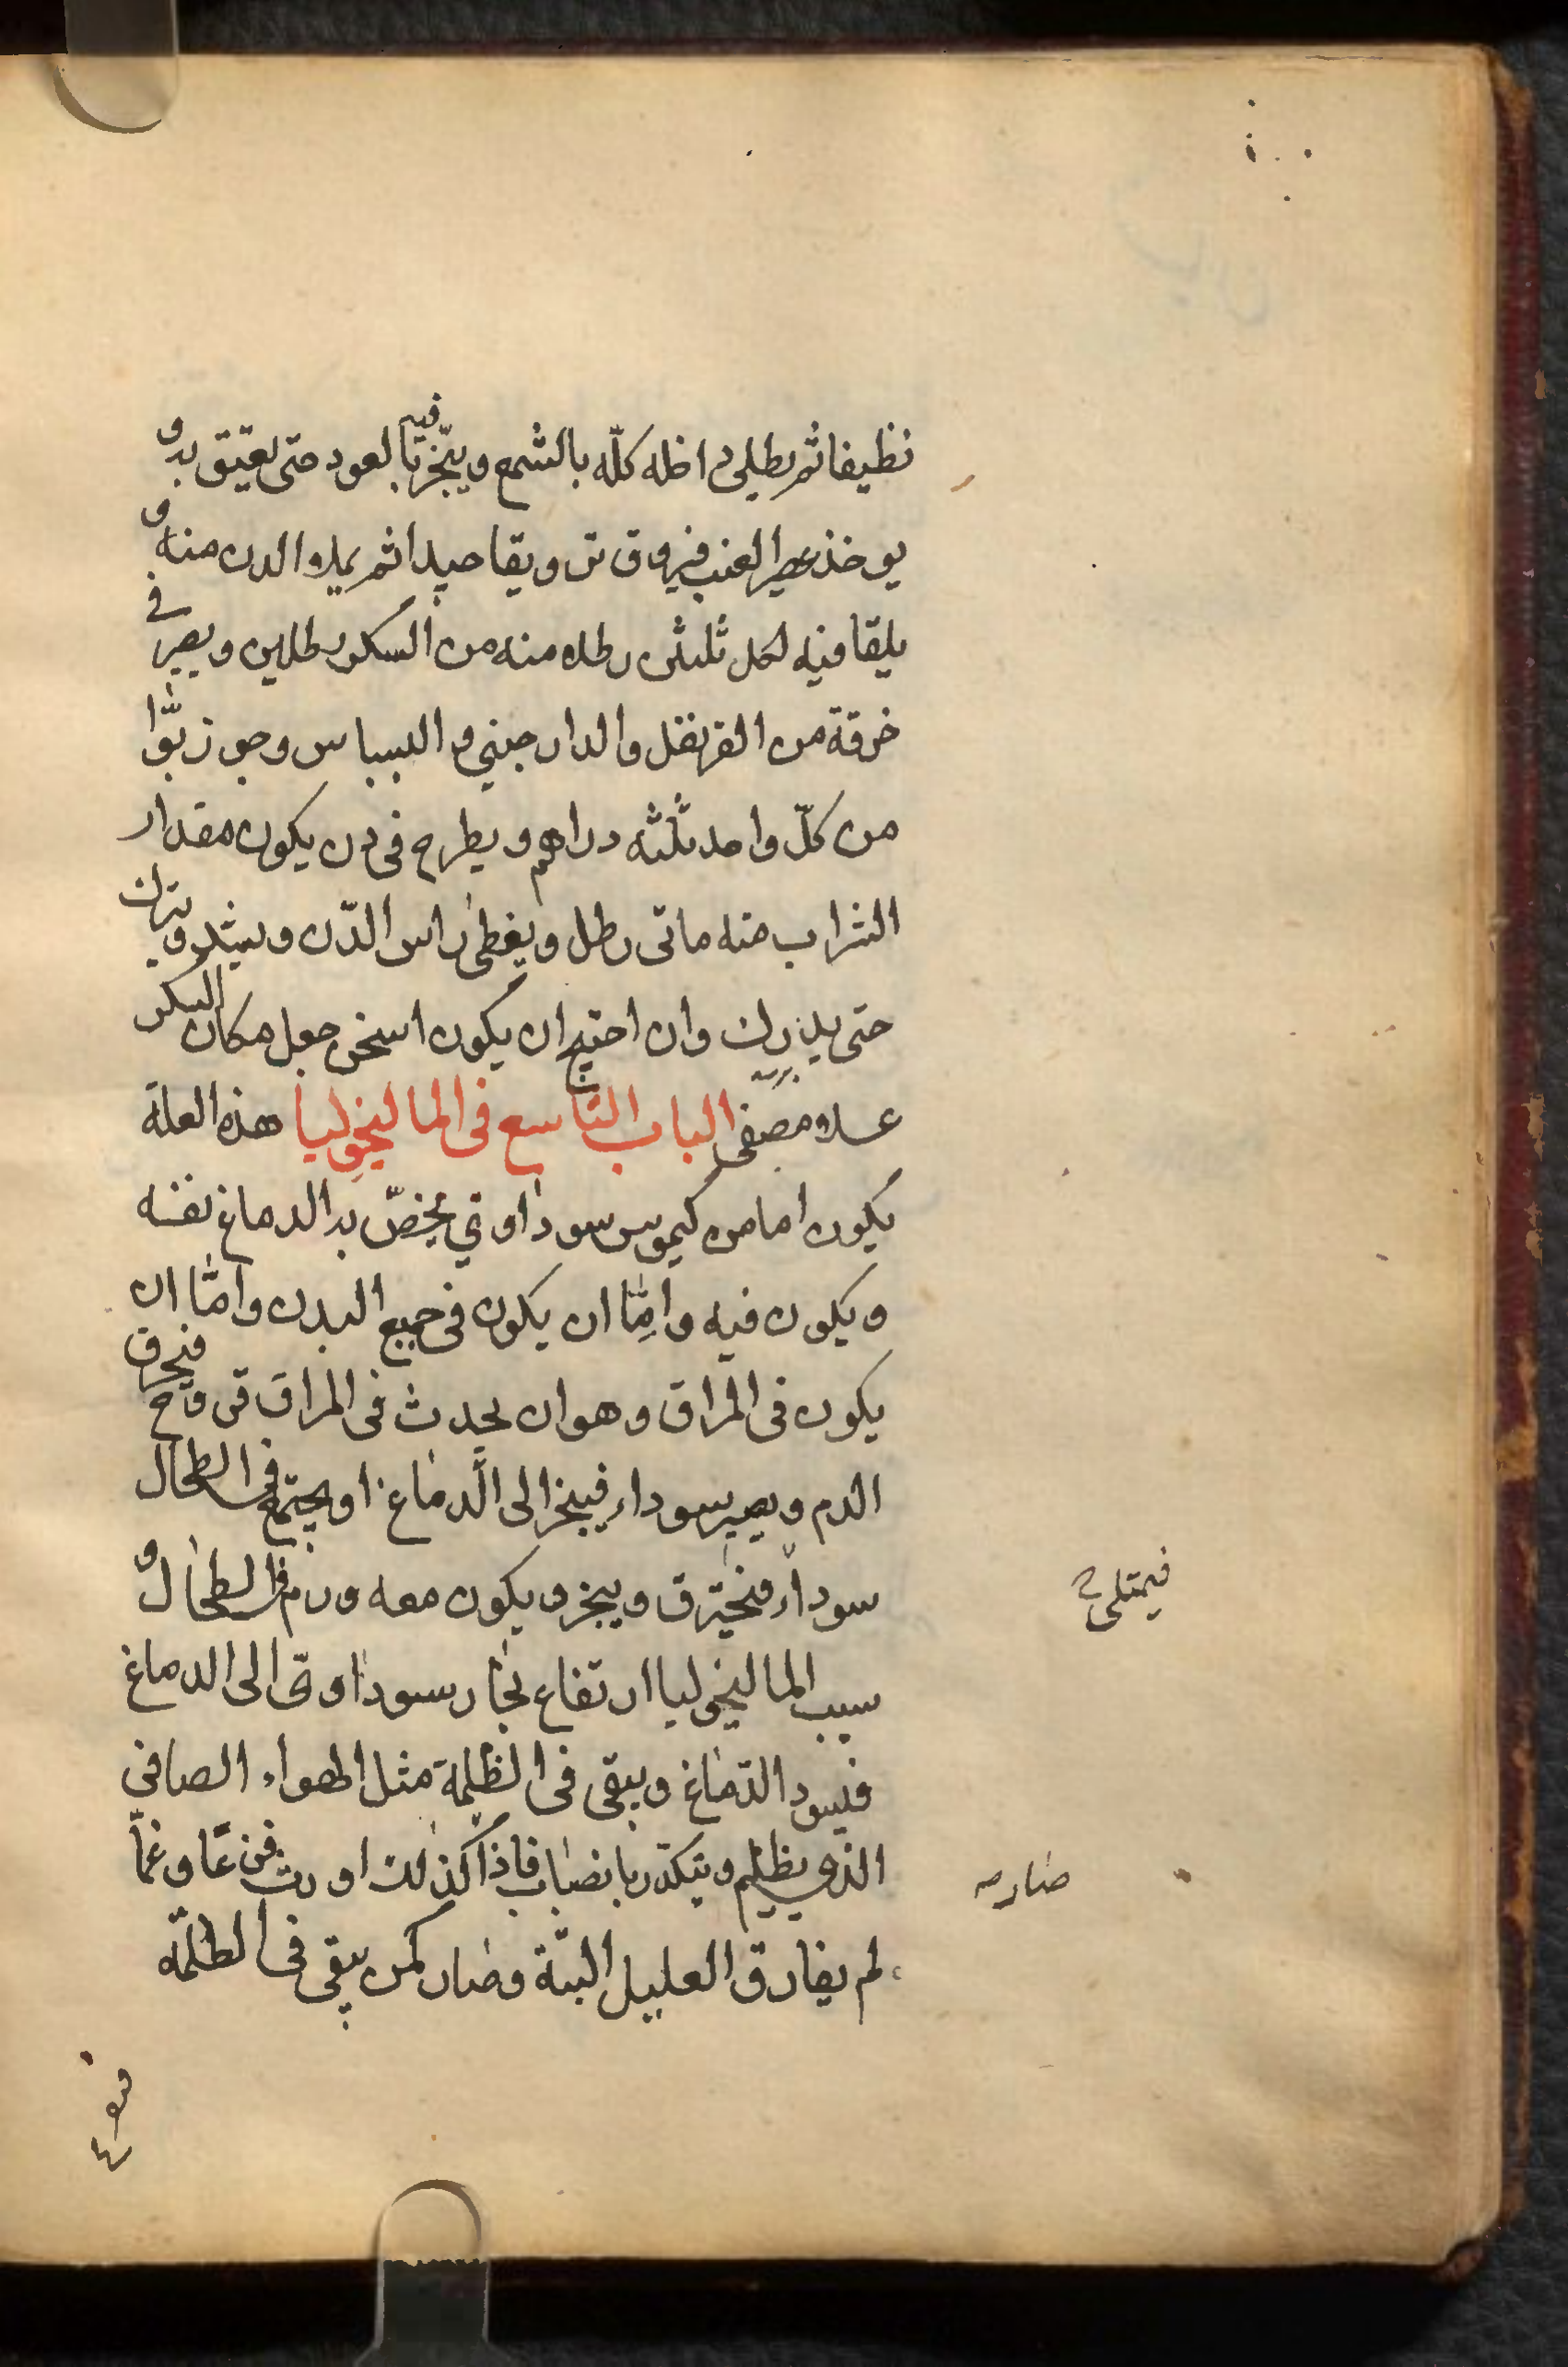 نظيفا ثم يطلى داخله كلّه بالشمع ويبخّر فيه بالعود حتى يعتق به و
يوخذ عصير العنب فيروق ويقا جيدا ثم يملا الدن منه و
يلقا فيه لكل ثلثين رطلا منه من السكر رطلين ويصير في
خرقة من القرنفل والدارجيني والبسباس وجوزبّوا
من كلّ واحد ثلثه دراهم ويطرح فى دن يكون مقدار
الشراب منه ماتى رطل ويغطى راس الدّن ويشد ويترك
حتى يدرك وان احتيج ان يكون اسخن جعل مكان السكر
عسلا مصفى الباب التاسع فى الماليخوليا هذه العلة
يكون اما من كيموس سوداوي يخصّ به الدماغ نفسه
ويكون فيه وامّا ان يكون فى جميع البدن وامّا ان
يكون فى المراق وهو ان يحدث فى المراق قروح فيحرق
الدم ويصير سوداء فيبخر الى الدماغ او يجتمع فى الطحال
سوداء فيحترق ويبخر ويكون معه ورم فى الطحال و
فيمتلى
سبب الماليخوليا ارتفاع بخار سوداوى الى الدماغ
فيسود الدماغ ويبقى فى الظلمة مثل الهواء الصافى
الذي يظلم ويتكدر بانضباب فاذا كذلك اورث فزعا وغمّا
صار
لم يفارق العليل البتّة وصار كمن يبقى فى الظلمة